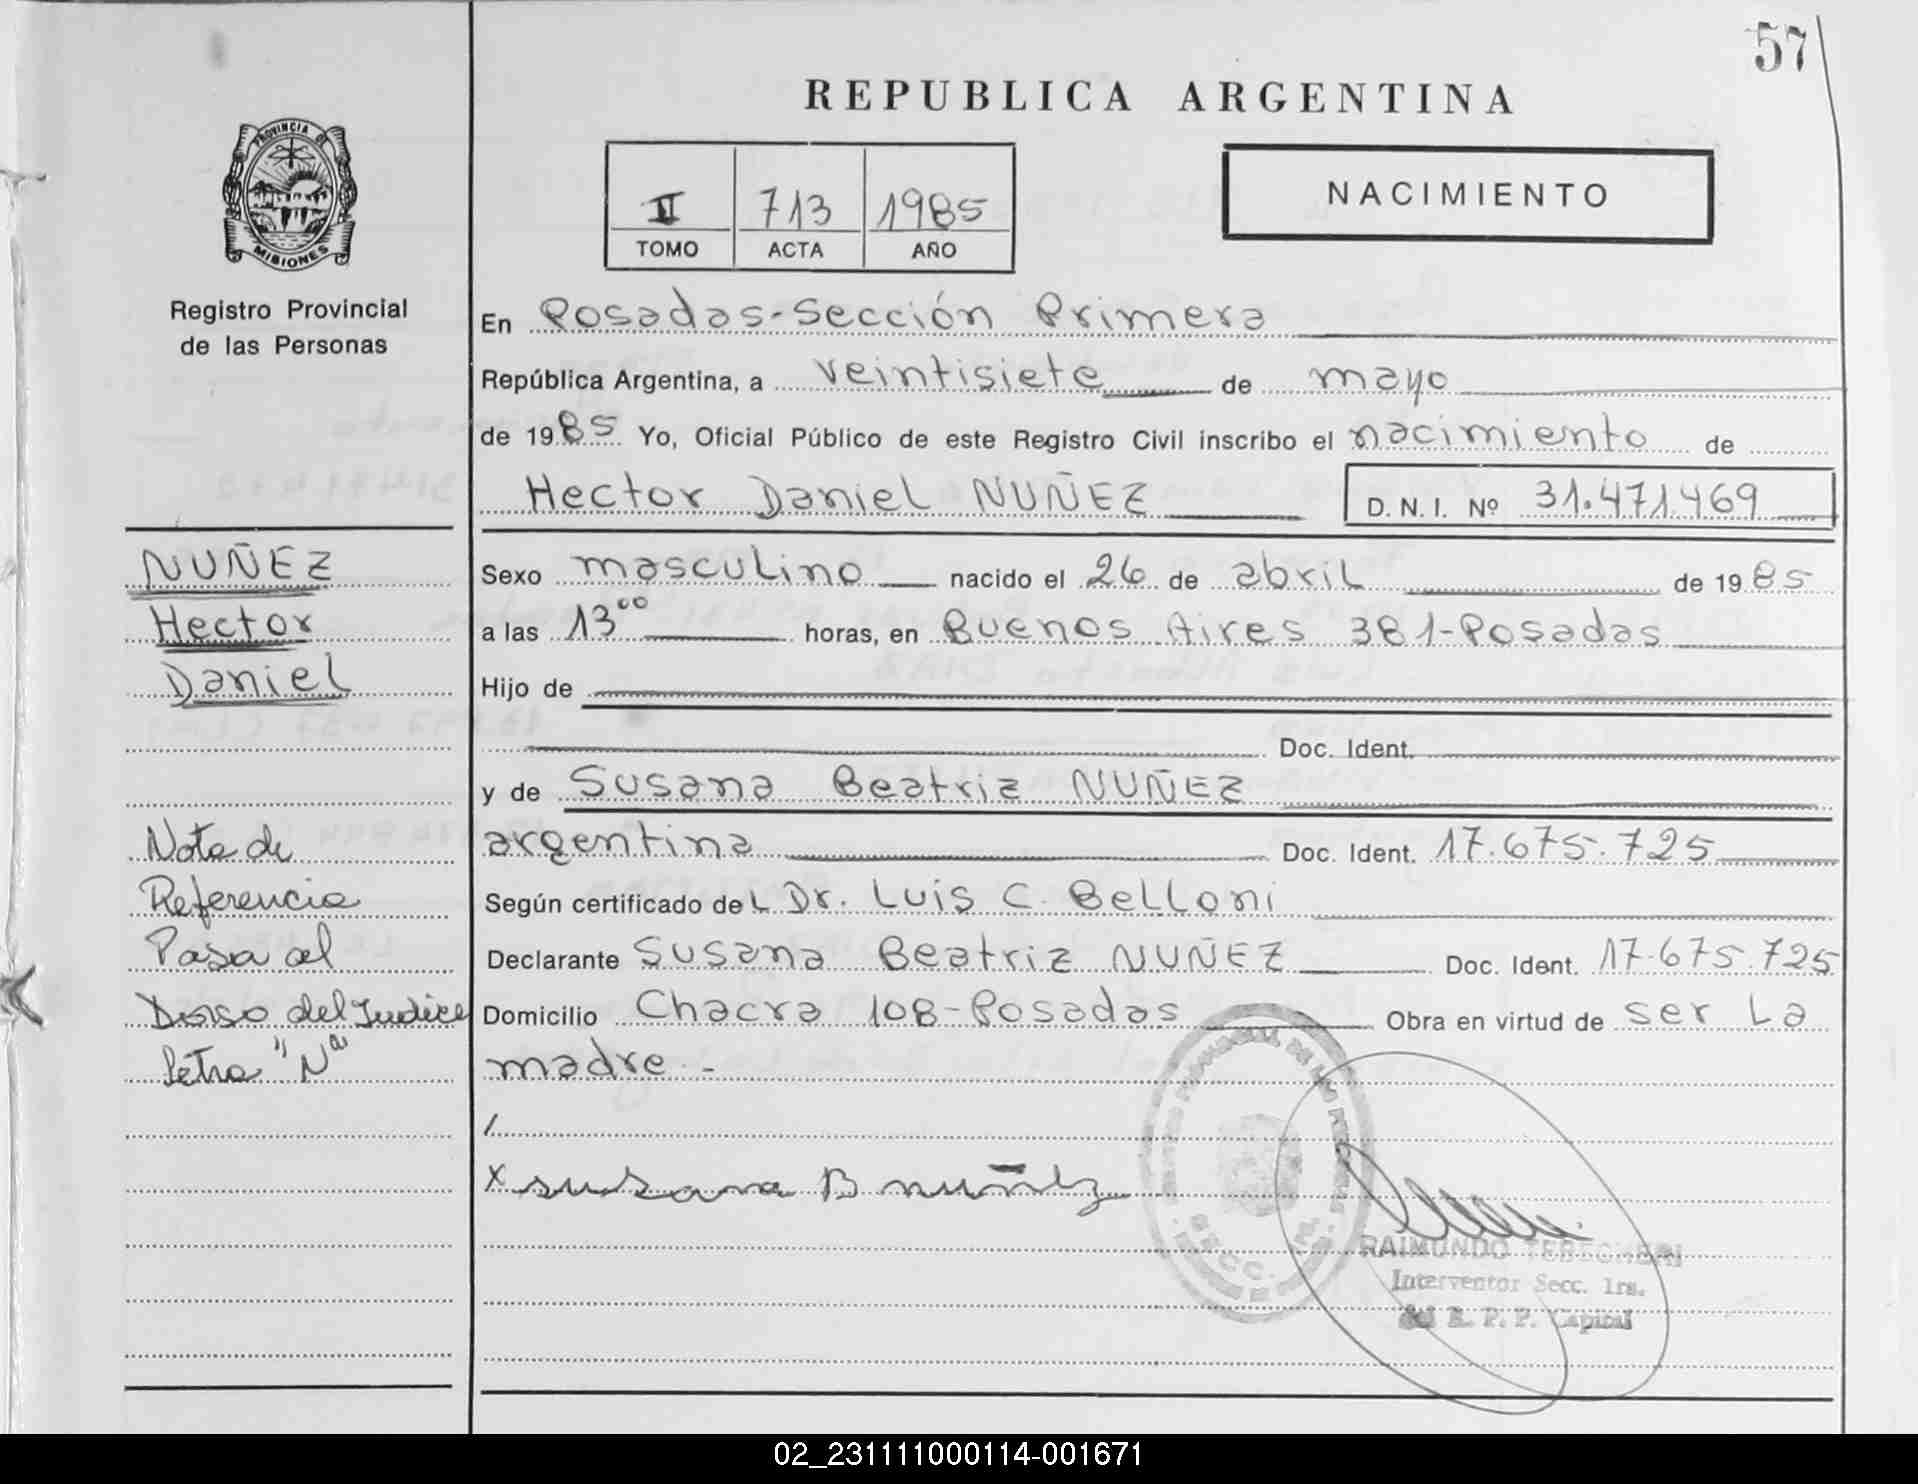 57
REPUBLICA ARGENTINA
PROVINCIA DE
MISIONES
Registro Provincial
de las Personas
II 713 1985
TOMO ACTA AÑO
NACIMIENTO
En Posadas-Sección Primera
República Argentina, a veintisiete de mayo
de 1985 Yo, Oficial Público de este Registro Civil inscribo el nacimiento de
Hector Daniel NUÑEZ D. N. I. Nº 31.471469
NUÑEZ
Hector
Daniel
Sexo masculino nacido el 26 de abril de 1985
a las 13⁰⁰ horas, en Buenos Aires 381-Posadas
Hijo de
Doc. Ident.
y de Susana Beatriz NUÑEZ
argentina Doc. Ident. 17.675.725
Según certificado del Dr. Luis C. Belloni
Declarante Susana Beatriz NUÑEZ Doc. Ident. 17.675.725
Domicilio Chacra 108-Posadas Obra en virtud de ser la
madre.-
Nota de
Referencia
Pasa al
Dorso del Indice
letra "N"
x susana B nuñez
SECC.
RAIMUNDO
Interventor Secc. 1ra.
R. P. P. Capital
02_231111000114-001671